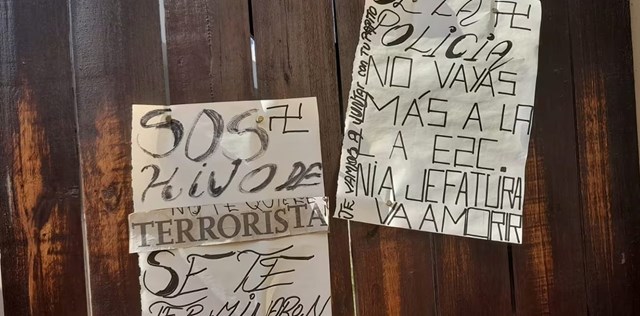 SOS
HIJO DE
NO TE QUIERE
TERRORISTA
SE TE
TERMINARON
POLICIA
NO VAYAS
MÁS A LA
E2C.
NI A JEFATURA
VA A MORIR
TE VAMOS A JUNTAR CON TU